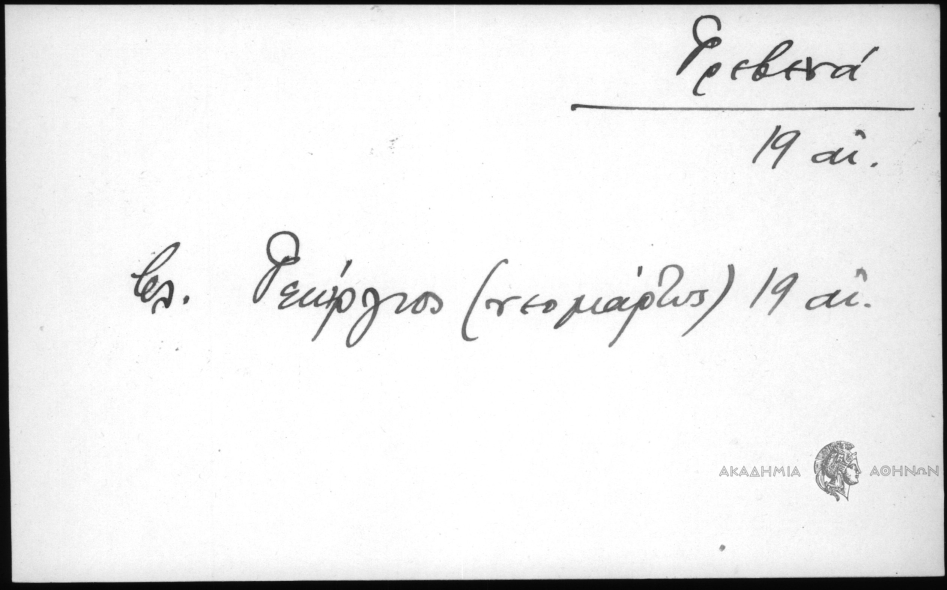 Γρεβενά
19 αἰ.
βλ. Γεώργιος (νεομάρτυς) 19 αἰ.
ΑΚΑΔΗΜΙΑ ΑΘΗΝΩΝ